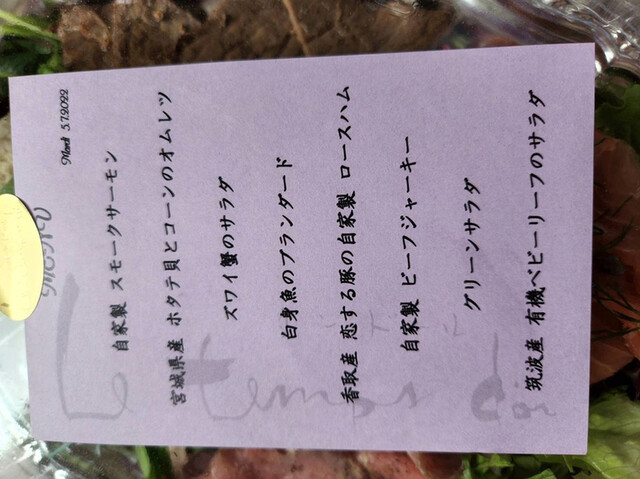 Menu
March 5.7.2022
自家製 スモークサーモン
宮城県産 ホタテ貝とコーンのオムレツ
ズワイ蟹のサラダ
白身魚のブランダード
香取産 恋する豚の自家製 ロースハム
自家製 ビーフジャーキー
グリーンサラダ
筑波産 有機ベビーリーフのサラダ
Le temps d'or